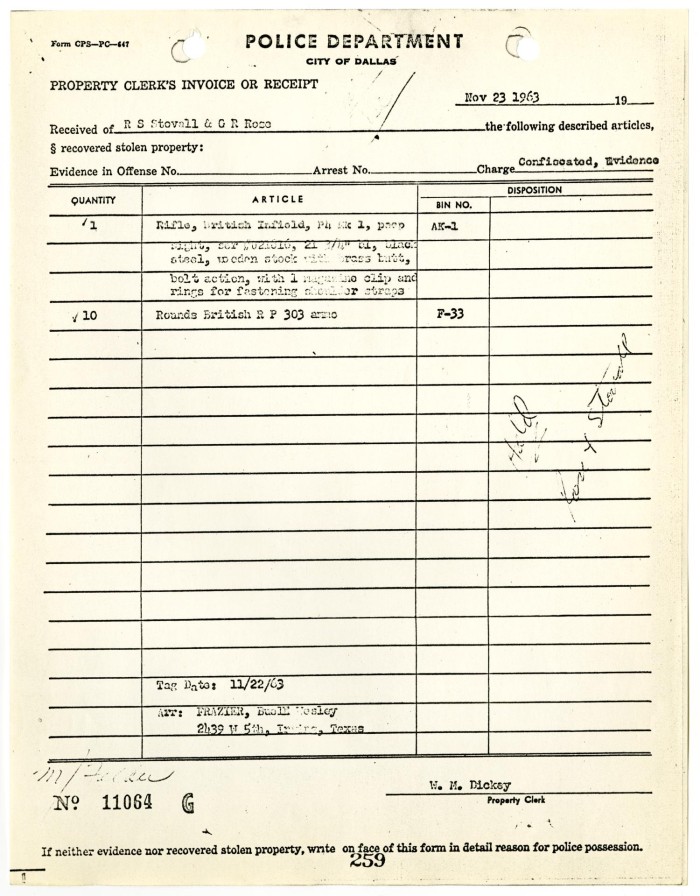 Form CPS—PC—447
POLICE DEPARTMENT
CITY OF DALLAS
PROPERTY CLERK'S INVOICE OR RECEIPT
Nov 23 1963 19
Received of R S Stovall & G R Rose the following described articles,
§ recovered stolen property:
Evidence in Offense No. Arrest No. Charge Confiscated, Evidence
QUANTITY ARTICLE BIN NO. DISPOSITION
√1 Rifle, british Infield, Mk 1, peep AK-1
sight, ser 21 3/4" bl, black
steel, wooden stock with brass butt,
bolt action, with 1 magazine clip and
rings for fastening shoulder straps
√ 10 Rounds British R P 303 ammo F-33
Hold
Rose & Stovall
Tag Date: 11/22/63
Arr: FRAZIER, Buell Wesley
2439 W 5th, Irving, Texas
W. M. Dickey
Property Clerk
Nº 11064 G
If neither evidence nor recovered stolen property, write on face of this form in detail reason for police possession.
259